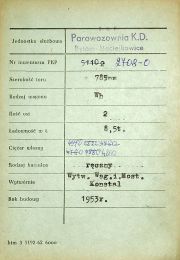 Jednostka służbowa
Parowozownia K.D.
Nr inwentarza PKP
Szerokość toru 785mm
Rodzaj wagonu Wh
Ilość osi 2
Ładowność w t 8,5t.
Ciężar własny
Rodzaj hamulca ręczny
Wytwórnia
Wytw. Wag.i.Most.
Konstal
Rok budowy 1953r.